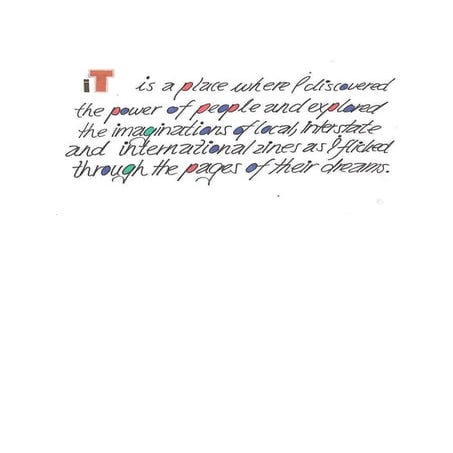 iT is a place where I discovered
the power of people and explored
the imaginations of local, interstate
and international zines as I flicked
through the pages of their dreams.